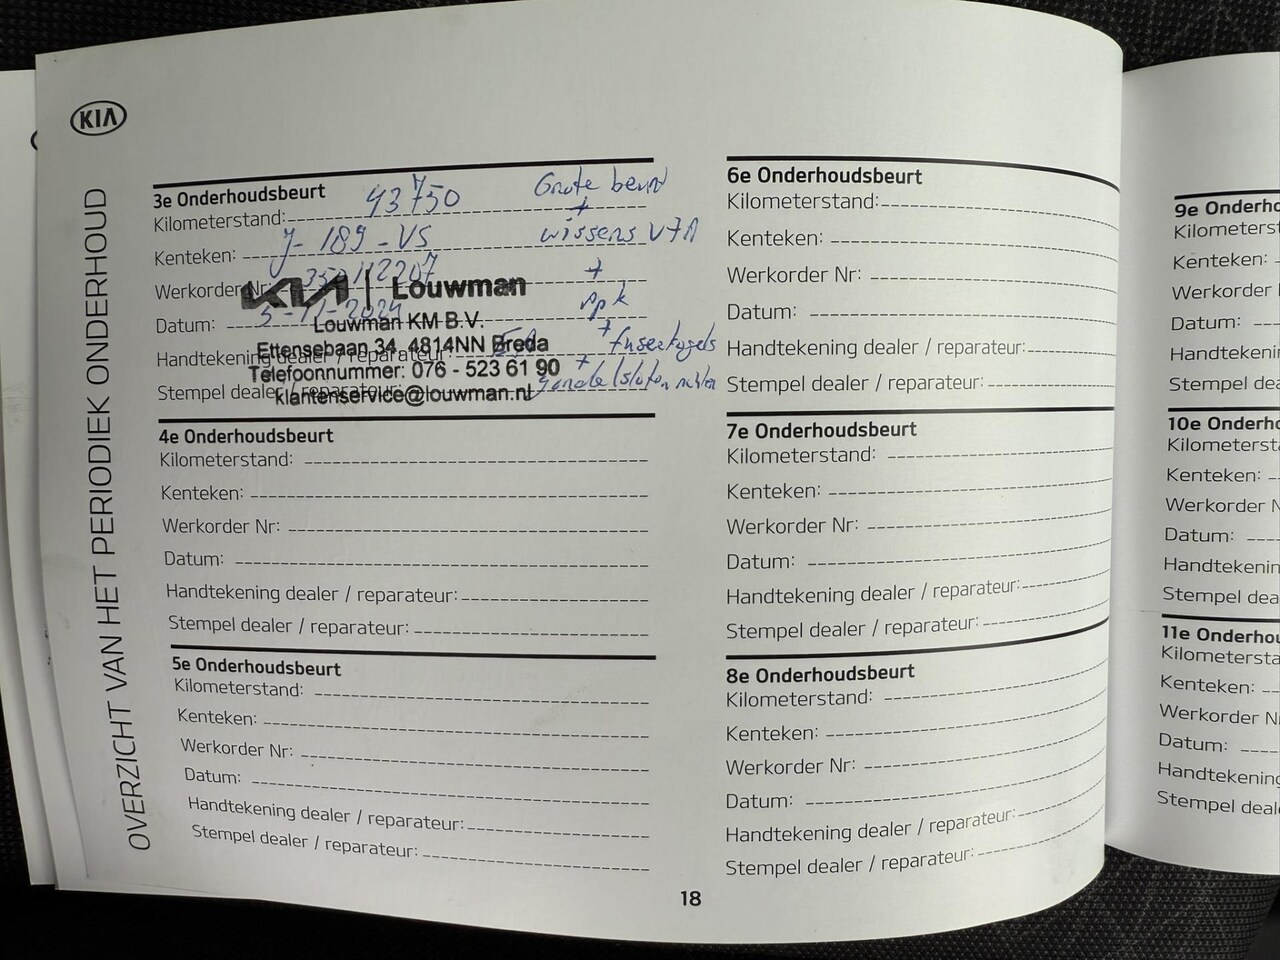 KIA
OVERZICHT VAN HET PERIODIEK ONDERHOUD
3e Onderhoudsbeurt
Kilometerstand: 43750
Kenteken: J-189-VS
Werkorder Nr: 350112207
Datum: 5-11-2024
Handtekening dealer / reparateur:
Stempel dealer / reparateur:
Grote beurt
+
wissers V+A
+
apk
+
+
KIA | Louwman
Louwman KM B.V.
Ettensebaan 34, 4814NN Breda
Telefoonnummer: 076 - 523 61 90
klantenservice@louwman.nl
4e Onderhoudsbeurt
Kilometerstand:
Kenteken:
Werkorder Nr:
Datum:
Handtekening dealer / reparateur:
Stempel dealer / reparateur:
5e Onderhoudsbeurt
Kilometerstand:
Kenteken:
Werkorder Nr:
Datum:
Handtekening dealer / reparateur:
Stempel dealer / reparateur:
6e Onderhoudsbeurt
Kilometerstand:
Kenteken:
Werkorder Nr:
Datum:
Handtekening dealer / reparateur:
Stempel dealer / reparateur:
7e Onderhoudsbeurt
Kilometerstand:
Kenteken:
Werkorder Nr:
Datum:
Handtekening dealer / reparateur:
Stempel dealer / reparateur:
8e Onderhoudsbeurt
Kilometerstand:
Kenteken:
Werkorder Nr:
Datum:
Handtekening dealer / reparateur:
Stempel dealer / reparateur:
18
9e Onderho
Kilometerst
Kenteken:
Werkorder
Datum:
Handtekeni
Stempel dea
10e Onderho
Kilometersta
Kenteken:
Werkorder N
Datum:
Handtekenin
Stempel dea
11e Onderhou
Kilometersta
Kenteken:
Werkorder N
Datum:
Handtekening
Stempel deal